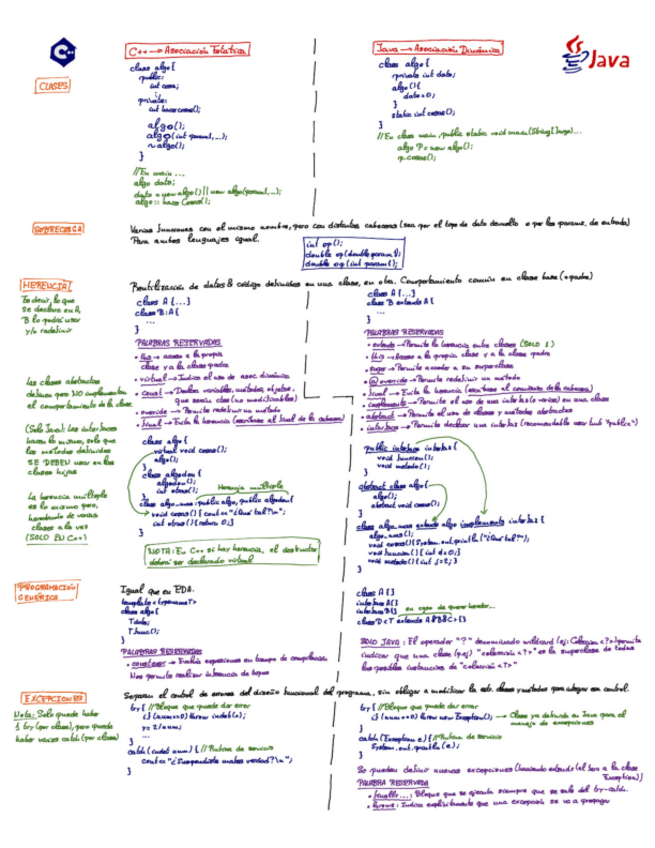 C++ → Asociación Estática
Java → Asociación Dinámica
Java
CLASES
class algo {
public:
int cosa;
private:
int hacercosas();
algo();
algo(int param1, ...);
~algo();
}
//En main ...
algo dato;
dato = new algo() || new algo(param1, ...);
class algo {
private int dato;
algo(){
dato=0;
}
static int cosas();
}
//En clase main, public static void main(String[]args)...
algo P = new algo();
p.cosas();
SOBRECARGA
Varias funciones con el mismo nombre, pero con distintas cabeceras (sea por el tipo de dato devuelto o por los params. de entrada)
Para ambos lenguajes igual.
int op();
double op(double param1);
double op(int param1);
HERENCIA
Es decir, lo que
se declare en A,
B lo podrá usar
y/o redefinir
Reutilización de datos & código definidos en una clase, en otra. Comportamiento común en clase base (o padre)
class A {...}
class B:A{
...
}
PALABRAS RESERVADAS
• this → acceso a la propia
clase y a la clase padre
• virtual → Indica el uso de asoc. dinámica
• const → Declara variables, métodos, objetos,
que serán ctes (no modificables)
• override → Permite redefinir un método
• final → Evita la herencia (escribirse al final de la cabecera)
class A {...}
class B extends A {
...
}
PALABRAS RESERVADAS
• extends → Permite la herencia entre clases (SOLO 1)
• this → Acceso a la propia clase y a la clase padre
• super → Permite acceder a su superclase
• @override → Permite redefinir un método
• final → Evita la herencia (escribirse al comienzo de la cabecera)
• implements → Permite el uso de una interfaz (o varias) en una clase
• abstract → Permite el uso de clases y métodos abstractos
• interface → Permite declarar una interfaz (recomendable usar with "public")
Las clases abstractas
definen pero NO implementan
el comportamiento de la clase
(Solo Java): Las interfaces
hacen lo mismo, solo que
los métodos definidos
SE DEBEN usar en las
clases hijas
La herencia múltiple
es lo mismo pero,
heredando de varias
clases a la vez
(SOLO EN C++)
class algo {
virtual void cosas();
algo();
}
class algodon {
algodon();
int otras();
}
Herencia múltiple
class algo_mas: public algo, public algodon{
void cosas() { cout << "¿Que tal?\n";
int otras() { return 0; }
}
NOTA: En C++ si hay herencia, el destructor
deberá ser declarado virtual
public interface interfaz {
void funcion();
void metodo();
}
abstract class algo {
algo();
abstract void cosas();
}
class algo_mas extends algo implements interfaz {
algo_mas();
void cosas(){System.out.println("¿Que tal?");
void funcion() { int d=0;}
void metodo() { int j=2; }
}
PROGRAMACIÓN
GENÉRICA
Igual que en EDA.
template <typename T>
class algo {
T dato;
T func();
}
PALABRAS RESERVADAS
• constexpr → Evalúa expresiones en tiempo de compilación
Nos permite realizar inferencia de tipos
class A {}
interface A{}
interface B{}
en caso de querer heredar...
class D<T extends A&B&C> {}
SOLO JAVA: El operador "?" denominado wildcard (ej: Coleccion<?>) permite
indicar que una clase (p.ej) "coleccion<?>" es la superclase de todas
las posibles instancias de "coleccion<?>"
EXCEPCIONES
Nota: Solo puede haber
1 try (por clase), pero puede
haber varios catch (por clase)
Separan el control de errores del diseño funcional del programa, sin obligar a modificar la estr. clases y métodos para integrar ese control.
try { //Bloque que puede dar error
if (num==0) throw
y= 2/num;
...
}
catch { // Rutina de servicio
cout <<
}
try { // Bloque que puede dar error
if (num==0) throw new Exception(); → Clase ya definida en Java para el
manejo de excepciones
}
catch (Exception e) { //Rutina de servicio
System.out.println(e);
}
Se pueden definir nuevas excepciones (haciendo extends a la clase
Exception))
PALABRA RESERVADA
• finally...: Bloque que se ejecuta siempre que se sale del try-catch.
• throws: Indica explícitamente que una excepción se va a propagar